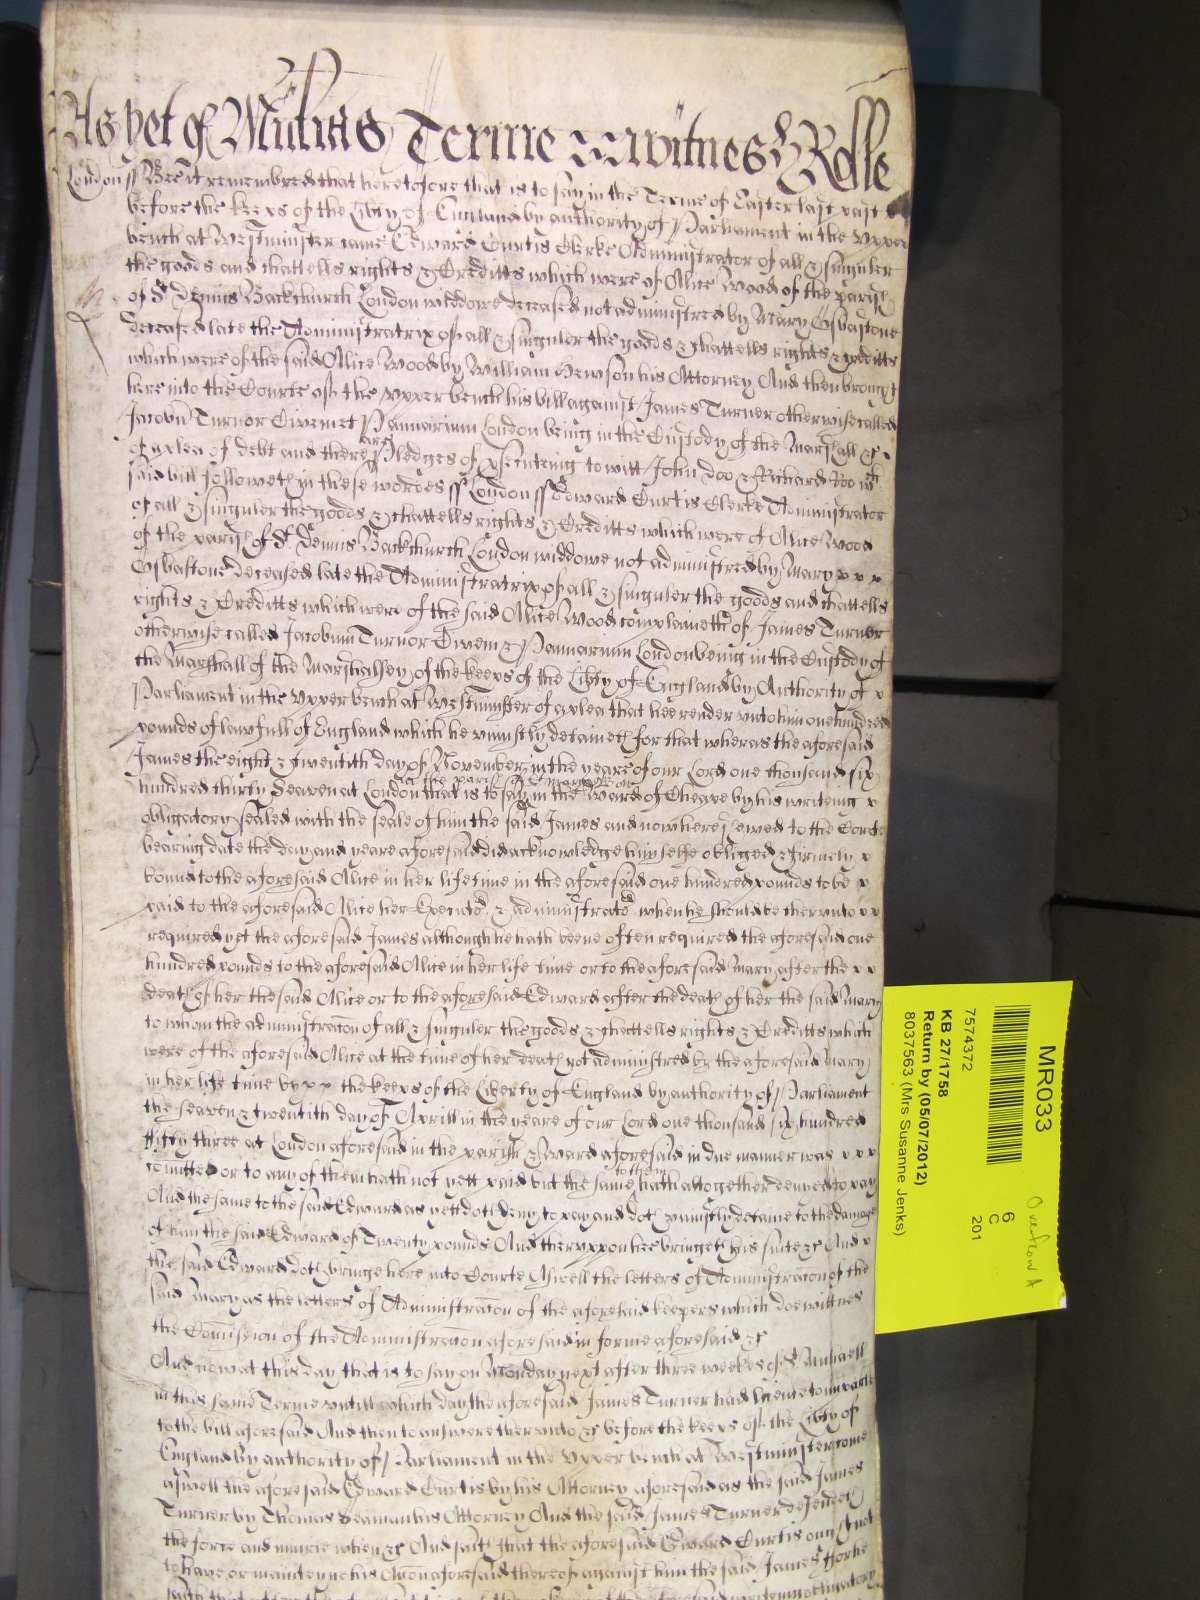 As yet of Mich'is Terme Wittnes H Rolle
London ss Bee it remembred that heretofore that is to say in the Terme of Easter last past
before the keep's of the Lib'ty of England by authority of Parliament in the Upper
bench at Westminster came Edward Curtis Clerke Administrator of all & singuler
the goods and chattells rights & Creditts which were of Alice Wood of the parish
of St Dennis Backchurch London widdowe deceased not administred by Mary Osbastone
deceased late the Administratrix of all & singuler the goods & chattells rights & creditts
which were of the said Alice Wood by William Hewson his Attorney And then brought
here into the Courte of the upper bench his bill against James Turner otherwise called
Jacobu' Turnor Civem et Pannarium London being in the Custody of the Marshall &c
of a plea of debt and there are Pledges of p'secuteing to witt John Doo & Richard Roo wch
said bill followeth in these wordes ss London ss Edward Curtis Clerke Administrator
of all & singuler the goods & chattells rights & Creditts which were of Alice Wood
of the parish of St Dennis Backchurch London widdowe not administred by Mary x x x
Osbastone deceased late the Administratrix of all & singuler the goods and chattells
rights & Creditts which were of the said Alice Wood complaineth of James Turner
otherwise called Jacobum Turnor Civem & Pannarium London being in the Custody of
the Marshall of the Marshalsey of the keep's of the Lib'ty of England by Authority of x
Parliament in the Upper bench at Westminster of a plea that hee render unto him one hundred
pounds of lawfull of England which he uniustly detaineth for that wheras the aforesaid
James the eight & twentith day of November in the yeare of our Lord one thousand six
hundred thirty Seaven at London that is to say in the parish of St Mary in the Ward of Cheape by his writeing x
obligatory sealed with the seale of him the said James and now here shewed to the Courte
bearing date the day and yeare aforesaid did acknowledge himselfe obliged & firmely x
bound to the aforesaid Alice in her life time in the aforesaid one hundred pounds to be x
paid to the aforesaid Alice her Executrs & administratrs when he should be therunto x x
required yet the aforesaid James although he hath beene often required the aforesaid one
hundred pounds to the aforesaid Alice in her life time or to the aforesaid Mary after the x x
death of her the said Alice or to the aforesaid Edward after the death of her the said Mary
to whom the administrac'on of all & singuler the goods & chattells rights & Creditts which
were of the aforesaid Alice at the time of her death not administred by the aforesaid Mary
in her life time by x x the keep's of the Liberty of England by authority of Parliament
the seaven & twentith day of Aprill in the yeare of our Lord one thousand six hundred
fifty three at London aforesaid in the parish & Ward aforesaid in due manner was x x x
comitted or to any of them hath not yett paid but the same to them hath altogether denyed to pay
And the same to the said Edward as yett doth deny to pay and doth uniustly detaine to the damage
of him the said Edward of Twenty pounds And theruppon hee bringeth his suite &c And x
the said Edward doth bringe here into Courte Aswell the letters of Administrac'on of the
said Mary as the letters of Administrac'on of the aforesaid keepers which doe wittnes
the Comission of the Administrac'on aforesaid in forme aforesaid &c
And now at this day that is to say on Monday next after three weekes of St Michaell
in this same Terme untill which day the aforesaid James Turner had licence to imparle
to the bill aforesaid And then to answere therunto &c before the keep's of the Lib'ty of
England by authority of Parliament in the Upper bench at Westminster come
aswell the aforesaid Edward Curtis by his Attorney aforesaid as the said James
Turner by Thomas Seaman his Attorney And the said James Turner defendeth
the force and iniurie when &c And saith that the aforesaid Edward Curtis ought not
to have or mainteyne his Acc'on aforesaid therof against him the said James
MR033
7574372
KB 27/1758
Return by (05/07/2012)
8037563 (Mrs Susanne Jenks)
6
C
201
Overflow A